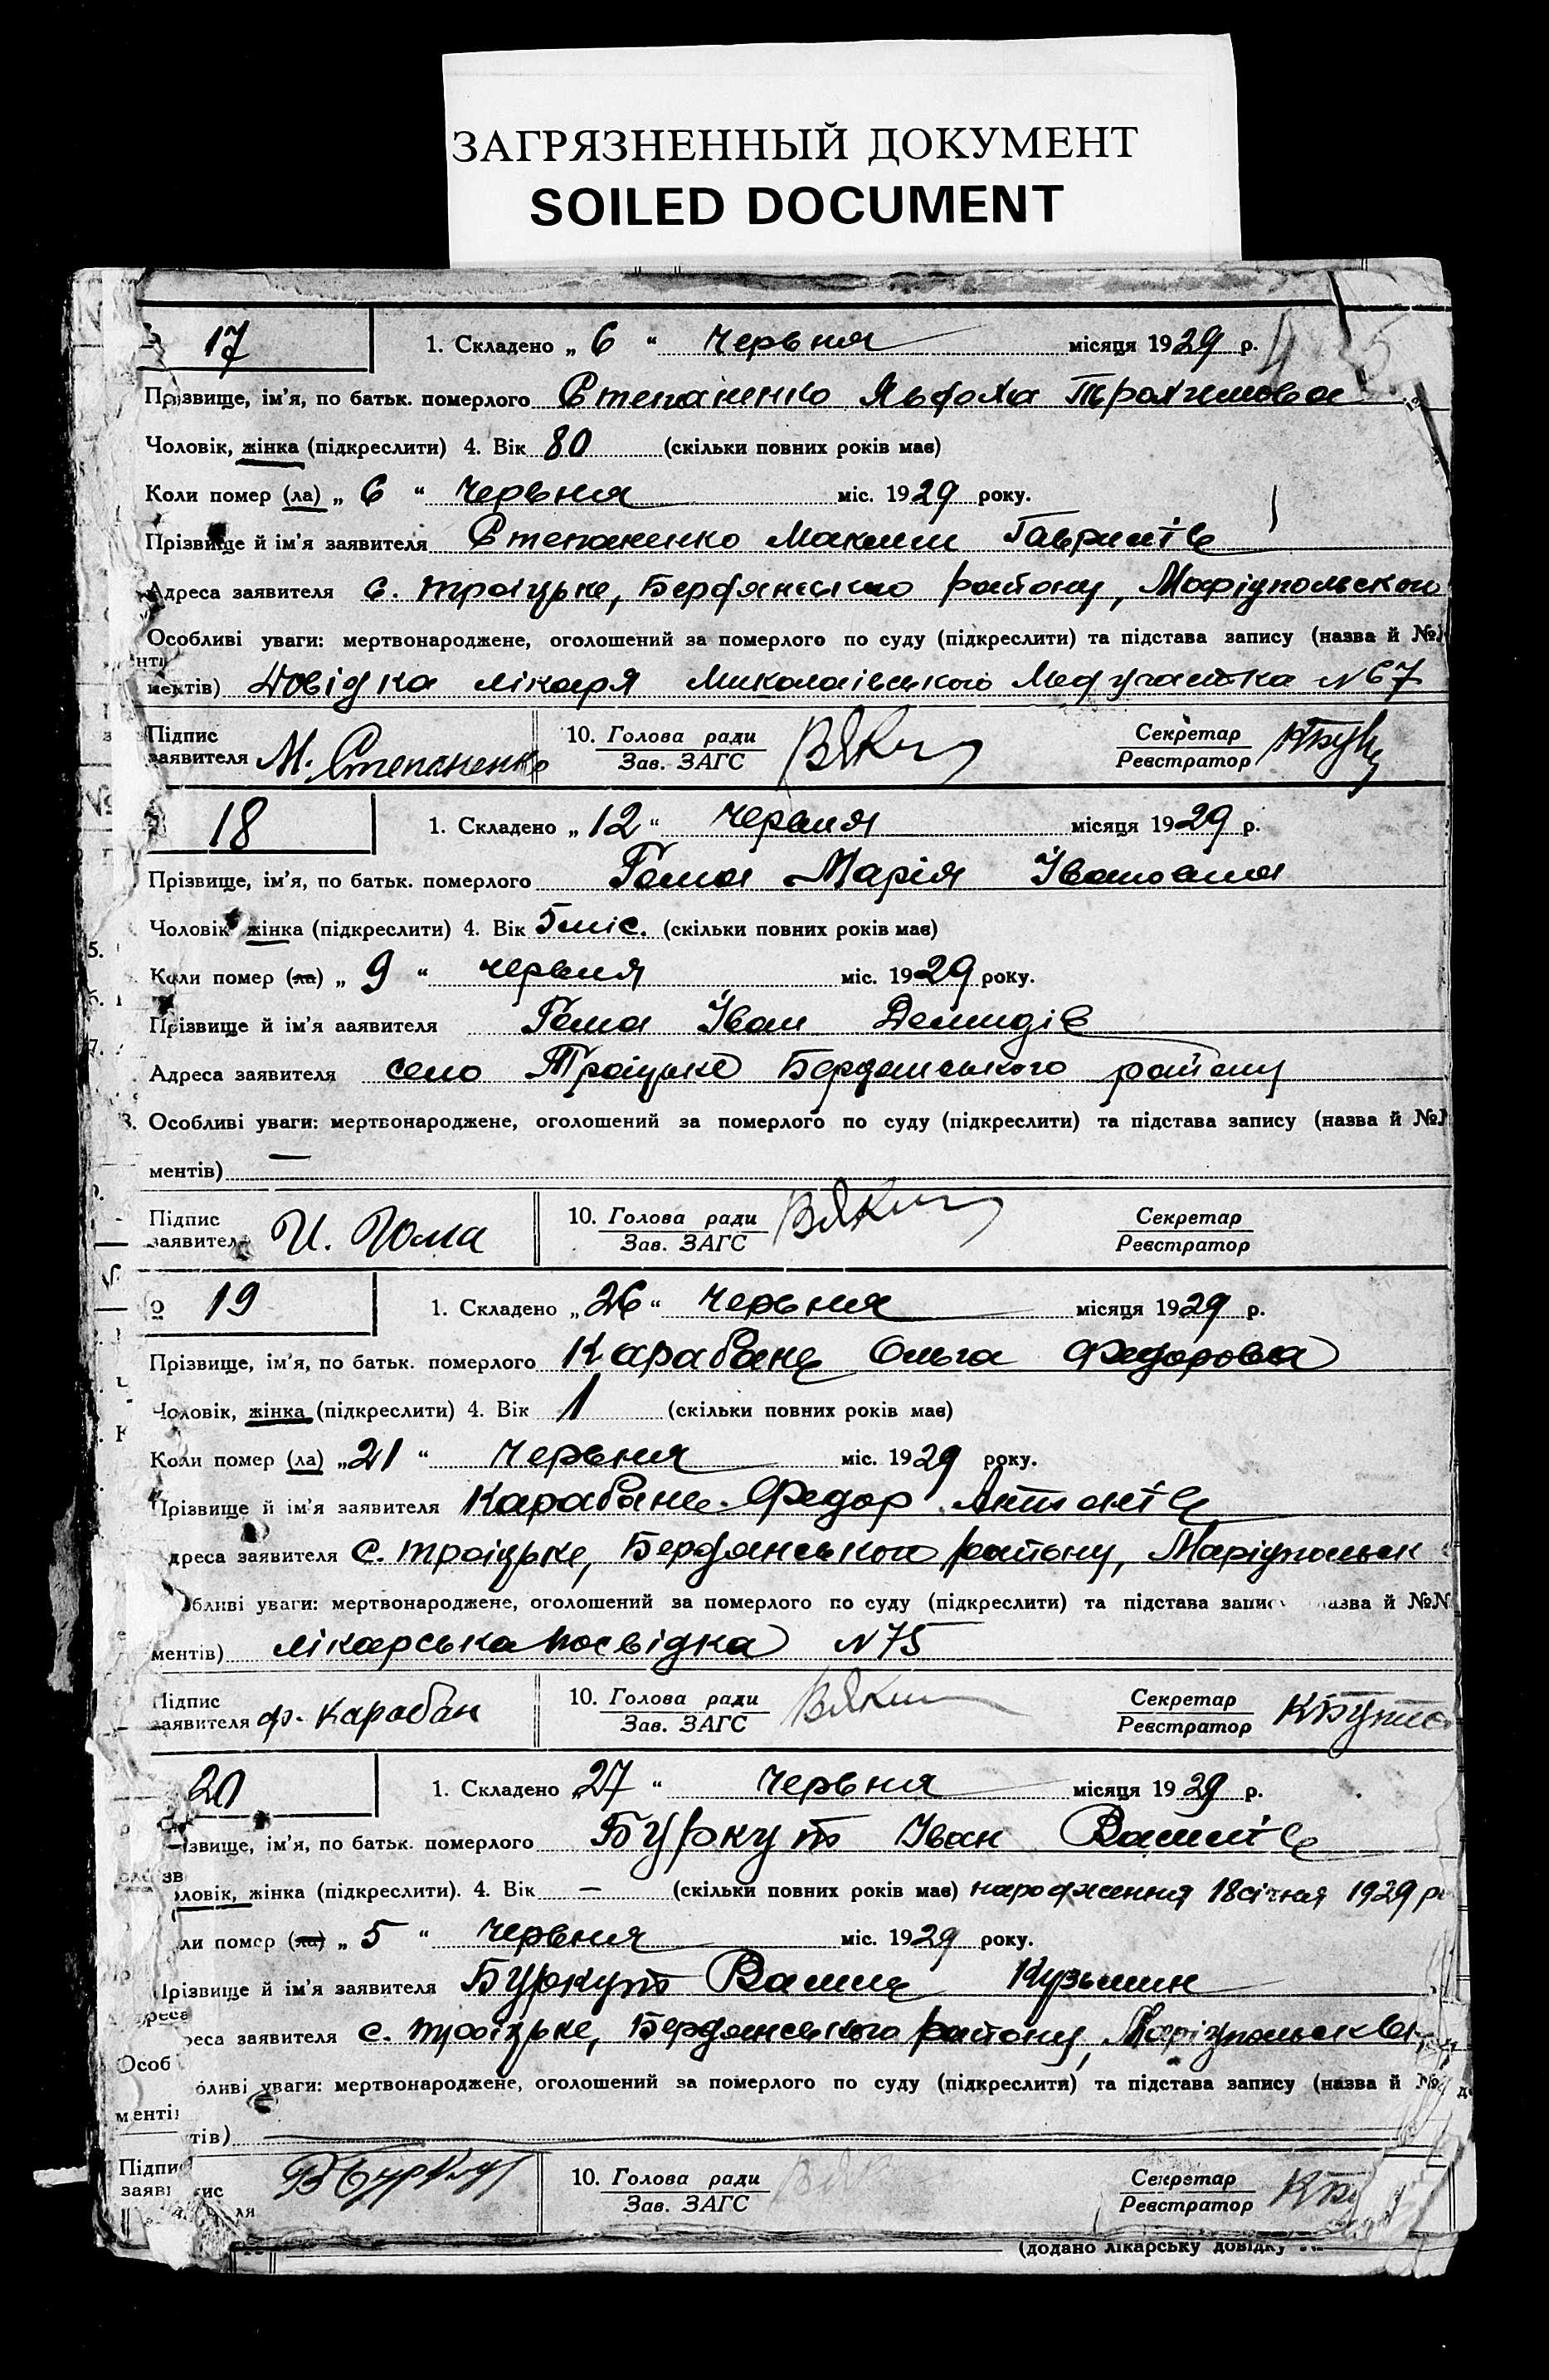 ЗАГРЯЗНЕННЫЙ ДОКУМЕНТ
SOILED DOCUMENT
17 1. Складено „ 6 “ Червня місяця 1929 р.
Прізвище, ім'я, по батьк. померлого Степаненко Явдоха Трохимова
Чоловік, жінка (підкреслити) 4. Вік 80 (скільки повних років має)
Коли помер (ла) „ 6 “ Червня міс. 1929 року.
Прізвище й ім'я заявителя Степаненко Максим Гаврилів
Адреса заявителя с. Троіцьке, Бердянського району, Маріупольского
Особливі уваги: мертвонароджене, оголошений за померлого по суду (підкреслити) та підстава запису (назва й №
ментів) Довідка лікаря Миколаівського Медучастка N 67
Підпис заявителя М. Степаненко 10. Голова ради Зав. ЗАГС Секретар Реєстратор
18 1. Складено „ 12 “ червня місяця 1929 р.
Прізвище, ім'я, по батьк. померлого Гома Марія Івановна
Чоловік жінка (підкреслити) 4. Вік 5 міс. (скільки повних років має)
Коли помер (ла) „ 9 “ червня міс. 1929 року.
Прізвище й ім'я заявителя Гома Іван Демидів
Адреса заявителя село Троіцьке Бердянського району
Особливі уваги: мертвонароджене, оголошений за померлого по суду (підкреслити) та підстава запису (назва й №
ментів) —
Підпис заявителя И. Гома 10. Голова ради Зав. ЗАГС Секретар Реєстратор
19 1. Складено „ 26 “ Червня місяця 1929 р.
Прізвище, ім'я, по батьк. померлого Карабань Ольга Федорова
Чоловік, жінка (підкреслити) 4. Вік 1 (скільки повних років має)
Коли помер (ла) „ 21 “ Червня міс. 1929 року.
Прізвище й ім'я заявителя Карабань Федор Антонів
дреса заявителя с. Троіцьке, Бердянського району, Маріупольськ
бливі уваги: мертвонароджене, оголошений за померлого по суду (підкреслити) та підстава запис назва й №N
ментів) лікарська посвідка N 75
Підпис заявителя ф. Карабан 10. Голова ради Зав. ЗАГС Секретар Реєстратор
20 1. Складено „ 27 “ Червня місяця 1929 р.
ізвище, ім'я, по батьк. померлого Буркут Іван Васильів
оловік, жінка (підкреслити). 4. Вік — (скільки повних років має) народження 18 січня 1929 р
ли помер (ла) „ 5 “ Червня міс. 1929 року.
Прізвище й ім'я заявителя Буркут Василь Кузьмин
реса заявителя с. Троіцьке, Бердянського району,
оливі уваги: мертвонароджене, оголошений за померлого по суду (підкреслити) та підстава запису (назва й №
тів)
10. Голова ради Зав. ЗАГС Секретар Реєстратор
(додано лікарську довідку